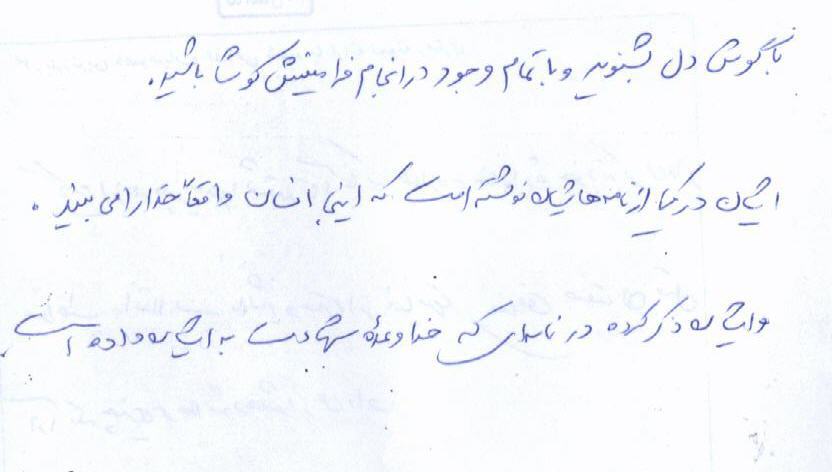 با گوش دل بشنوید و با تمام وجود در انجام فرامینش کوشا باشید.
ایشان در یکی از نامه‌هایشان نوشته است که اینجا انسان واقعاً خدا را می بیند.
و ایشان ذکر کرده در نامه‌ای که خدا وعدۀ شهادت به ایشان داده است.